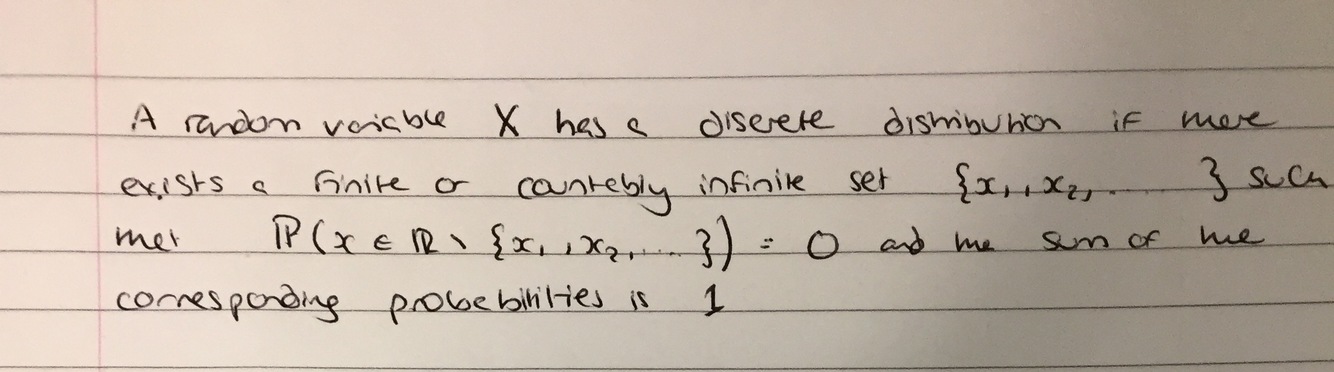 A random variable X has a discrete distribution if there
exists a finite or countably infinite set {x₁, x₂, ..... } such
that ℙ(x ∈ ℝ \ {x₁, x₂, .... }) = 0 and the sum of the
corresponding probabilities is 1